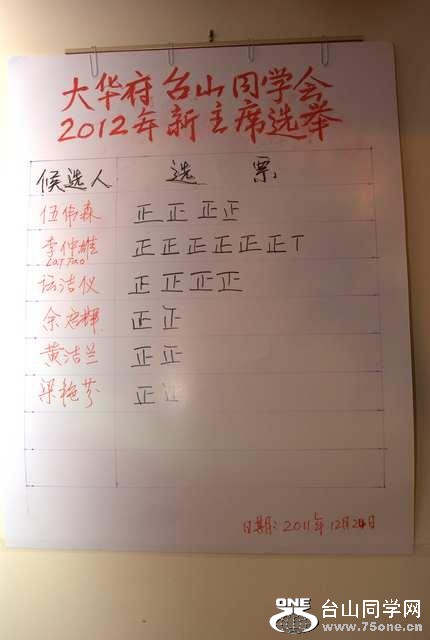 大华府台山同学会
2012年新主席选举
候选人 选 票
伍伟森 正 正 正 正
李仲維 正 正 正 正 正 正 T
洁仪 正 正 正 正
余启輝 正 正
黄洁兰 正 正
梁艳芬 正
日期: 2011年12月24日
ONE
台山同学网
www.75one.cn